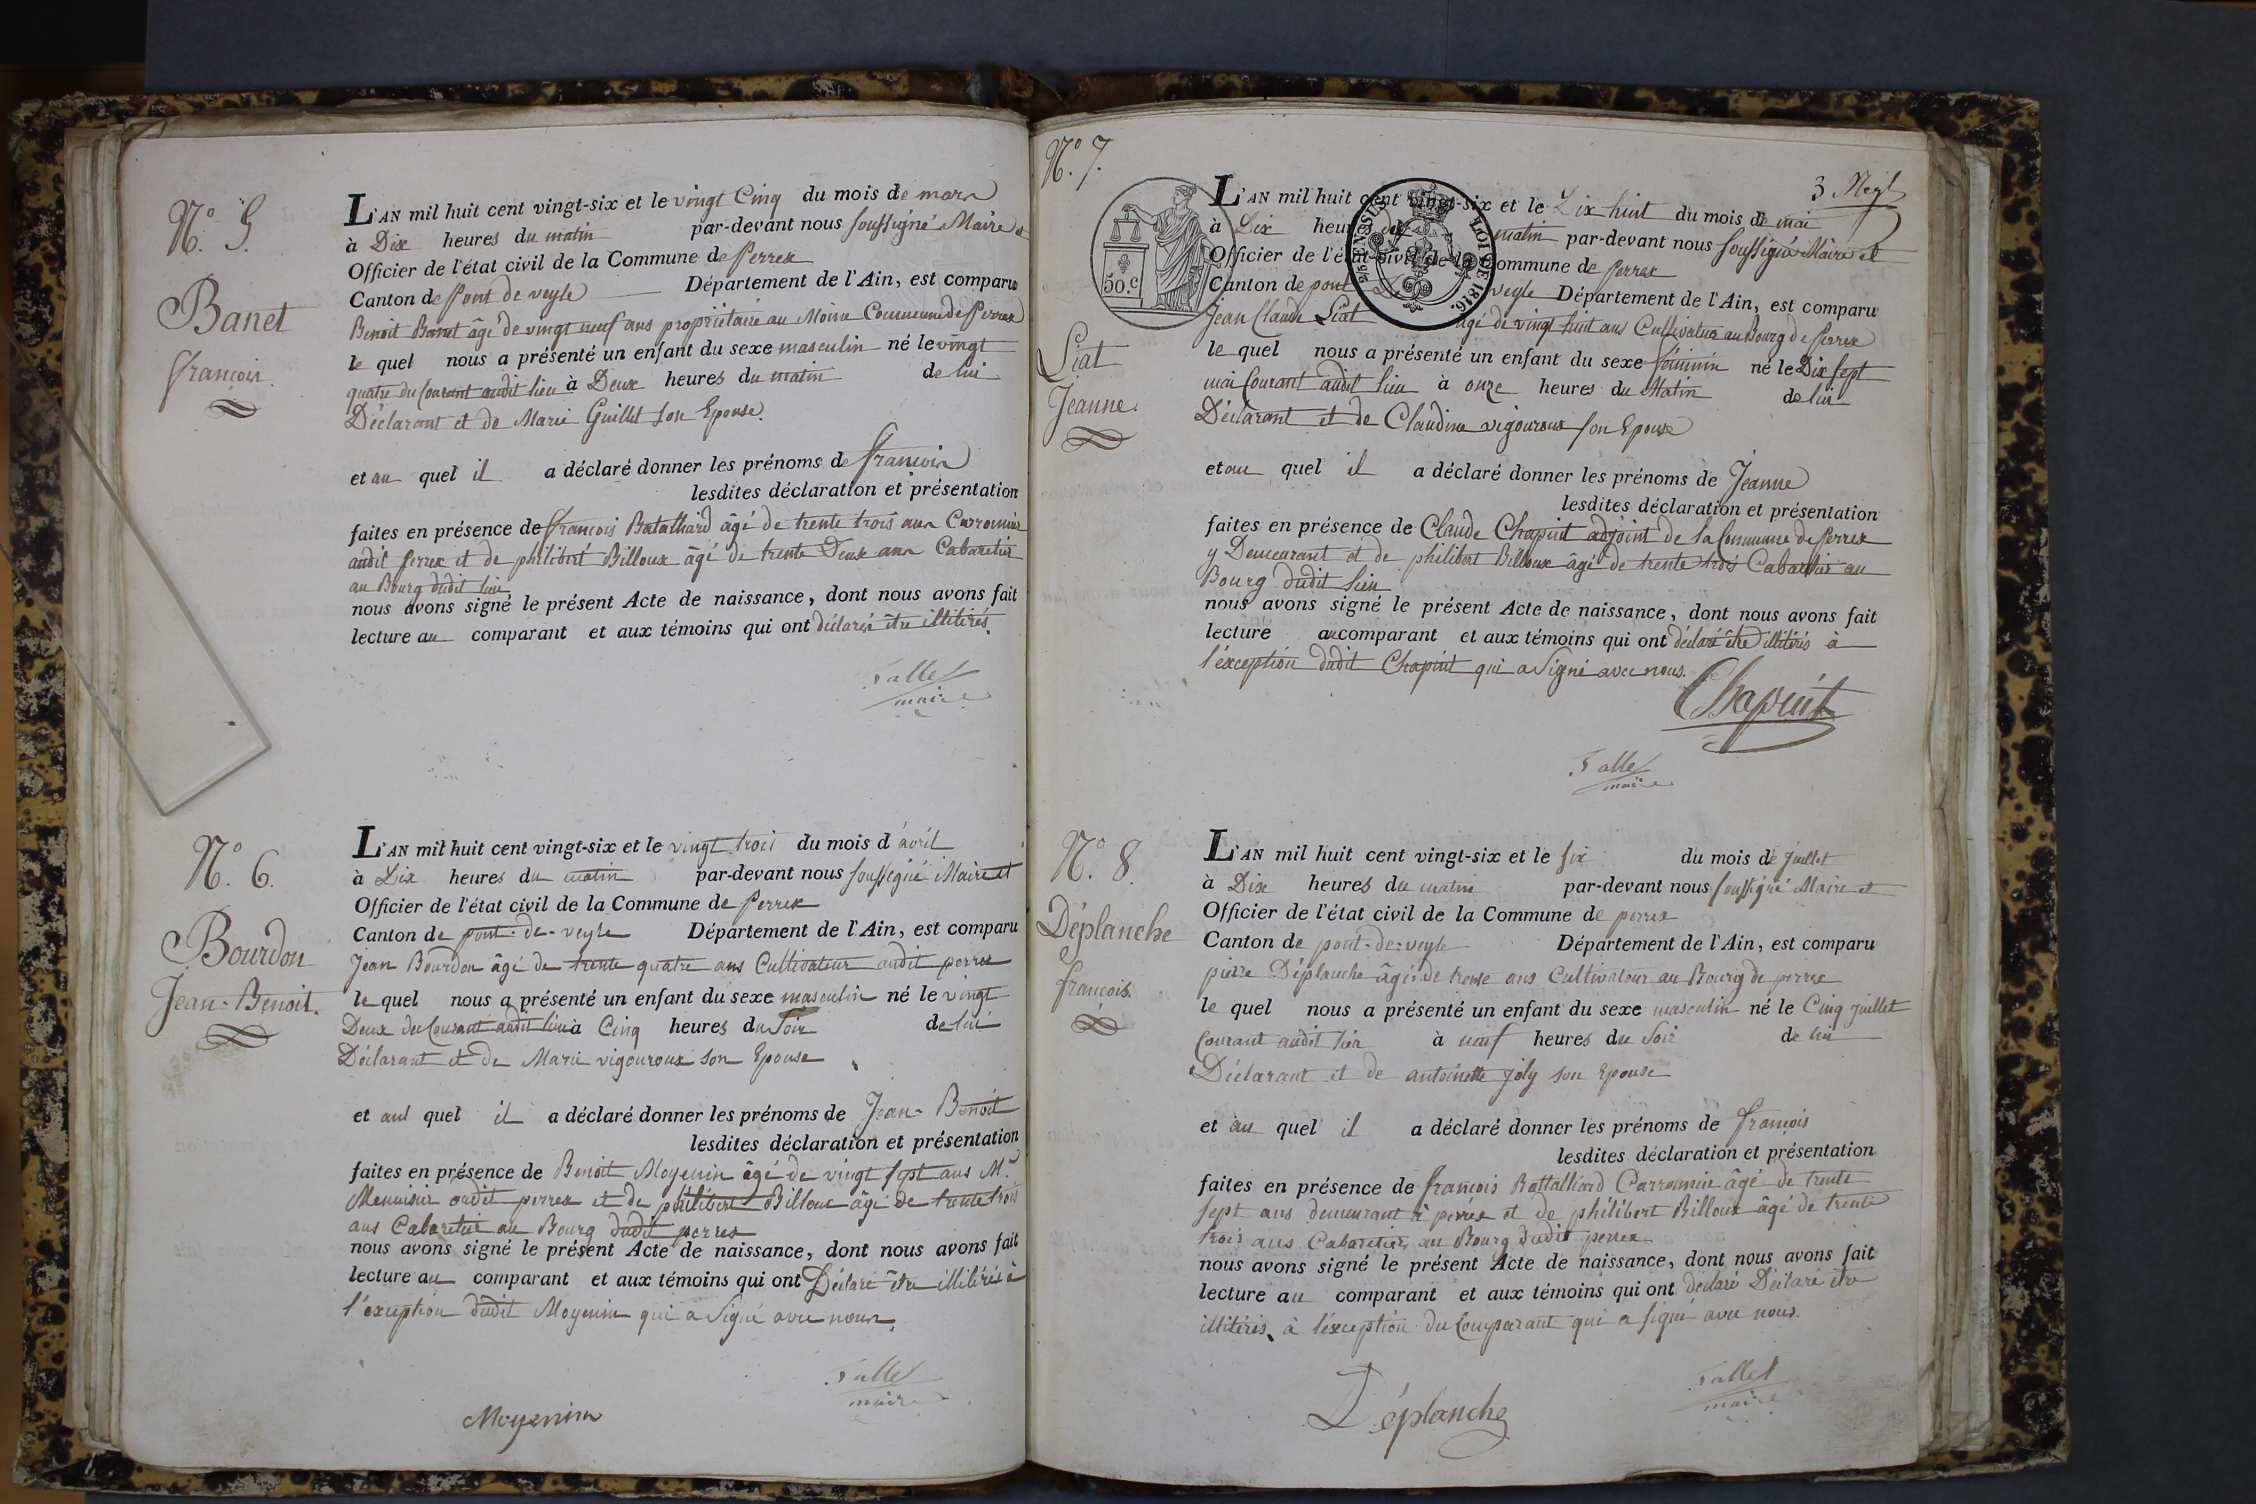 N.° 5.
Banet
françois
L'AN mil huit cent vingt-six et le vingt Cinq du mois de mars
à Dix heures du matin par-devant nous soussigné Maire et
Officier de l'état civil de la Commune de Perrex
Canton de Pont de veyle Département de l'Ain, est comparu
Benoit Banet âgé de vingt neuf ans propriétaire au Moine Commune de Perrex
le quel nous a présenté un enfant du sexe masculin né le vingt
quatre du Courant audit lieu à Deux heures du matin de lui
Déclarant et de Marie Guillet son Epouse.
et au quel il a déclaré donner les prénoms de françois
lesdites déclaration et présentation
faites en présence de françois Batalliard âgé de trente trois ans Carronnier
audit perrex et de philibert Billoux âgé de trente Deux ans Cabaretier
au Bourg dudit lieu,
nous avons signé le présent Acte de naissance, dont nous avons fait
lecture au comparant et aux témoins qui ont déclarés être illitérés.
Tallet
maire
N.° 6.
Bourdon
Jean-Benoit.
L'AN mil huit cent vingt-six et le vingt trois du mois d'avril
à Dix heures du matin par-devant nous soussigné Maire et
Officier de l'état civil de la Commune de Perrex
Canton de pont-de-veyle Département de l'Ain, est comparu
Jean Bourdon âgé de trente quatre ans Cultivateur audit perrex
le quel nous a présenté un enfant du sexe masculin né le vingt
Deux du Courant audit lieu à Cinq heures du Soir de lui
Déclarant et de Marie vigouroux son Epouse
et au quel il a déclaré donner les prénoms de Jean-Benoit
lesdites déclaration et présentation
faites en présence de Benoit Moyenin âgé de vingt sept ans M.
Menuisier audit perrex et de philibert Billoux âgé de trente trois
ans Cabaretier au Bourg dudit perrex
nous avons signé le présent Acte de naissance, dont nous avons fait
lecture au comparant et aux témoins qui ont Déclaré être illitérés à
l'exception dudit Moyenin qui a signé avec nous.
Tallet
maire
Moyenin
N.° 7.
3
Liat
Jeanne.
50.c
LOI DE 1816.
L'AN mil huit cent vingt-six et le Dix huit du mois de mai
à Dix heures du matin par-devant nous soussigné Maire et
Officier de l'état civil de la Commune de Perrex
Canton de pont De veyle Département de l'Ain, est comparu
Jean Claude Liat âgé de vingt huit ans Cultivateur au Bourg de Perrex
le quel nous a présenté un enfant du sexe féminin né le Dix sept
mai Courant audit lieu à onze heures du Matin de lui
Déclarant et de Claudine vigouroux son Epouse
et au quel il a déclaré donner les prénoms de Jeanne
lesdites déclaration et présentation
faites en présence de Claude Chapuit adjoint de la Commune de Perrex
y Demeurant et de philibert Billoux âgé de trente trois Cabaretier au
Bourg dudit lieu
nous avons signé le présent Acte de naissance, dont nous avons fait
lecture au comparant et aux témoins qui ont déclaré être illitérés à
l'exception dudit Chapuit qui a Signé avec nous.
Chapuit
Tallet
maire
N.° 8.
Déplanche
françois.
L'AN mil huit cent vingt-six et le six du mois de juillet
à Dix heures du matin par-devant nous soussigné Maire et
Officier de l'état civil de la Commune de perrex
Canton de pont-de-veyle Département de l'Ain, est comparu
pierre Déplanche âgé de trente ans Cultivateur au Bourg de perrex
le quel nous a présenté un enfant du sexe masculin né le Cinq juillet
Courant audit lieu à neuf heures du Soir de lui
Déclarant et de antoinette joly son Epouse
et au quel il a déclaré donner les prénoms de françois
lesdites déclaration et présentation
faites en présence de françois Battalliard Carronnier âgé de trente
sept ans demeurant à perrex et de philibert Billoux âgé de trente
trois ans Cabaretier, au Bourg dudit perrex
nous avons signé le présent Acte de naissance, dont nous avons fait
lecture au comparant et aux témoins qui ont déclaré Déclaré être
illitérés, à l'exception du Comparant qui a signé avec nous.
Déplanche
Tallet
maire